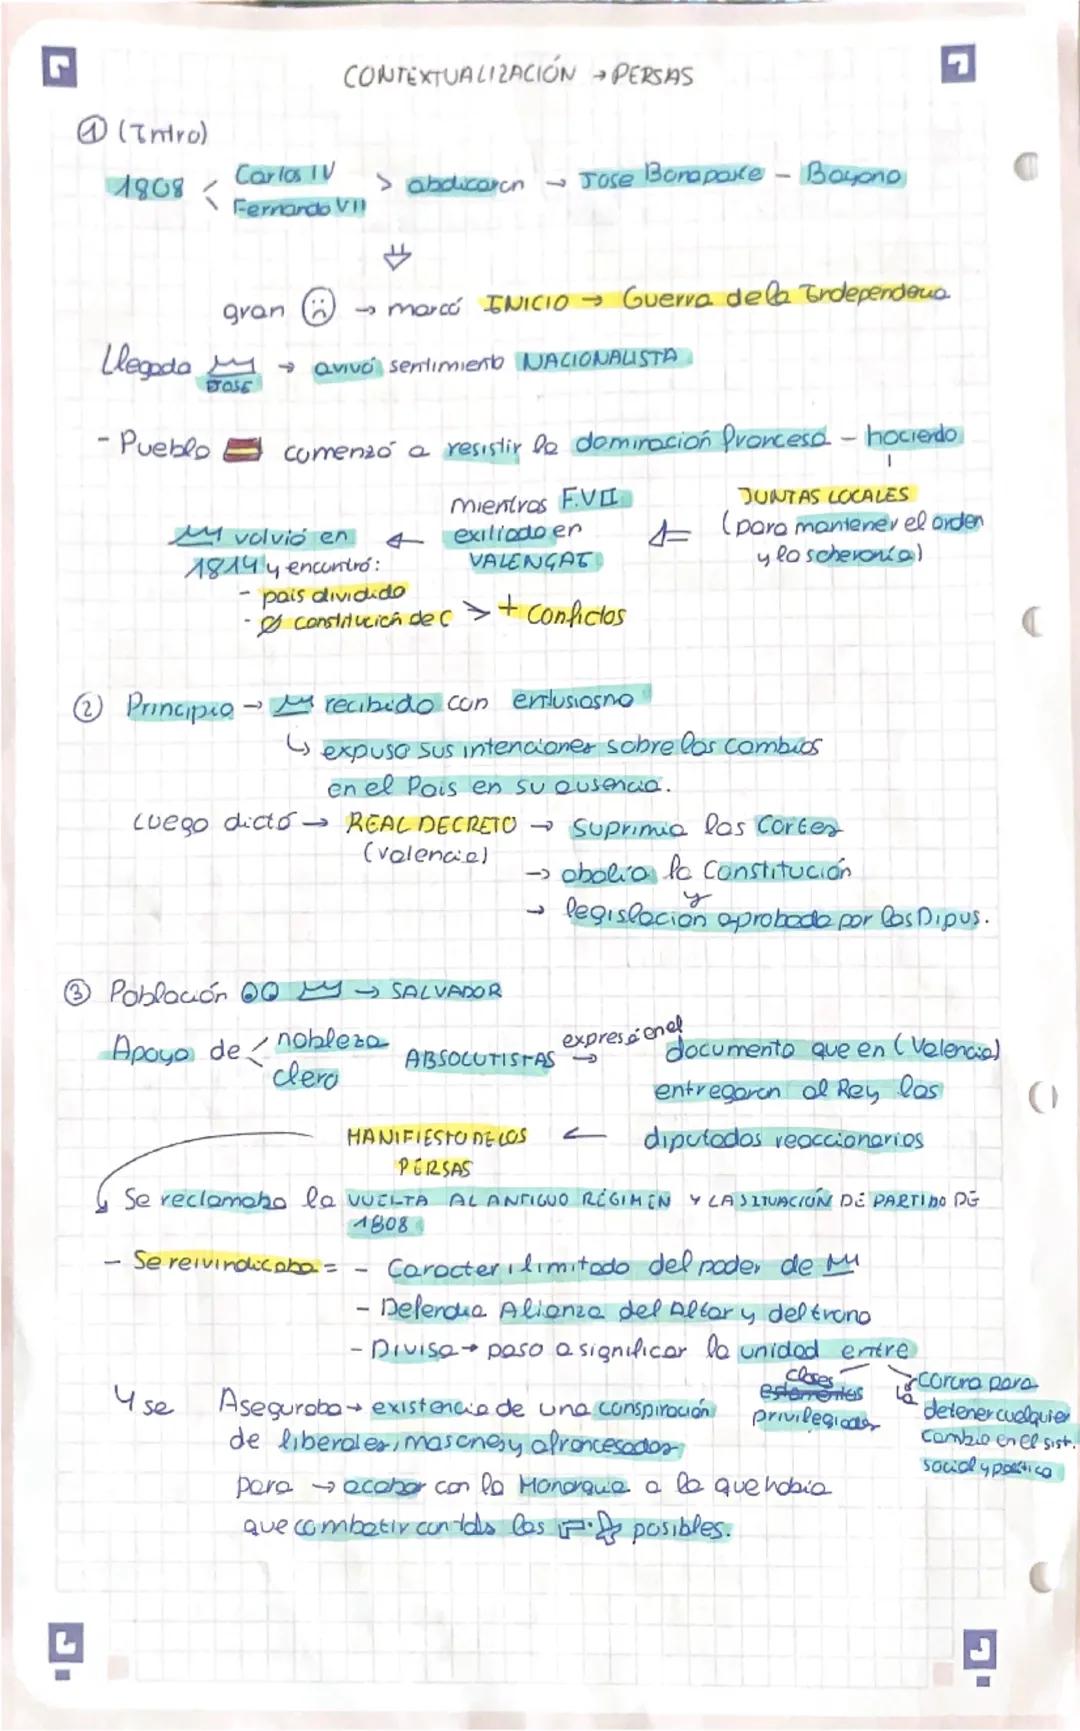 CONTEXTUALIZACIÓN → PERSAS
① (Intro)
1808 < Carlos IV
Fernando VII > abdicaron → Jose Bonaparte - Bayona
gran ☹ → marcó INICIO → Guerra de la Independencia
Llegada JOSE → avivó sentimiento NACIONALISTA
- Pueblo comenzó a resistir la dominación francesa - haciendo
JUNTAS LOCALES
(para mantener el orden
y la soberanía)
mientras F.VII
exiliado en
VALENÇAT
volvió en
1814 y encontró:
- pais dividido
- Ø constitución de C > + Conflictos
② Principio → recibido con entusiasmo
↳ expuso sus intenciones sobre los cambios
en el Pais en su ausencia.
Luego dictó → REAL DECRETO → suprimia las Cortes
(Valencia)
→ abolía la Constitución
y
→ legislación aprobada por los Dipus.
③ Población → SALVADOR
Apoyo de < nobleza
clero
ABSOLUTISTAS → expresó en el
documento que en (Valencia)
entregaron al Rey los
diputados reaccionarios
MANIFIESTO DE LOS ←
PERSAS
Se reclamaba la VUELTA AL ANTIGUO RÉGIMEN Y LA SITUACIÓN DE PARTIDO DE
1808
- Se reivindicaba = - Caracter ilimitado del poder de
- Defendia Alianza del Altar y del trono
- Divisa → paso a significar la unidad entre
clases
estamentos
privilegiados
la corona para
detener cualquier
cambio en el sist.
social y político
Y se Aseguraba → existencia de una conspiración
de liberales, masones y afrancesados
para → acabar con la Monarquia a la que habia
que combatir con tds las posibles.